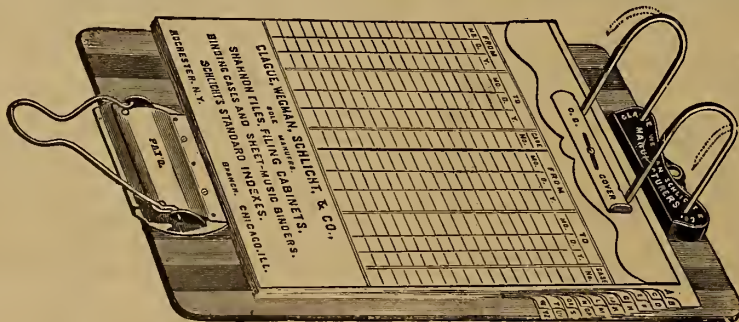 CLAGUE, WEGMAN, SCHLICHT, & CO.,
SOLE MANUFRS.
SHANNON FILES, FILING CABINETS,
BINDING CASES AND SHEET-MUSIC BINDERS.
SCHLICHT'S STANDARD INDEXES.
ROCHESTER. N.Y. BRANCH. CHICAGO. ILL.
FROM TO CASE FROM TO CASE
MO. D. Y. MO. D. Y. NO. MO. D. Y. MO. D. Y. NO.
O. D. COVER
CLAGUE WE AN SCHLICHT &
MANUF TURERS
PAT'D.